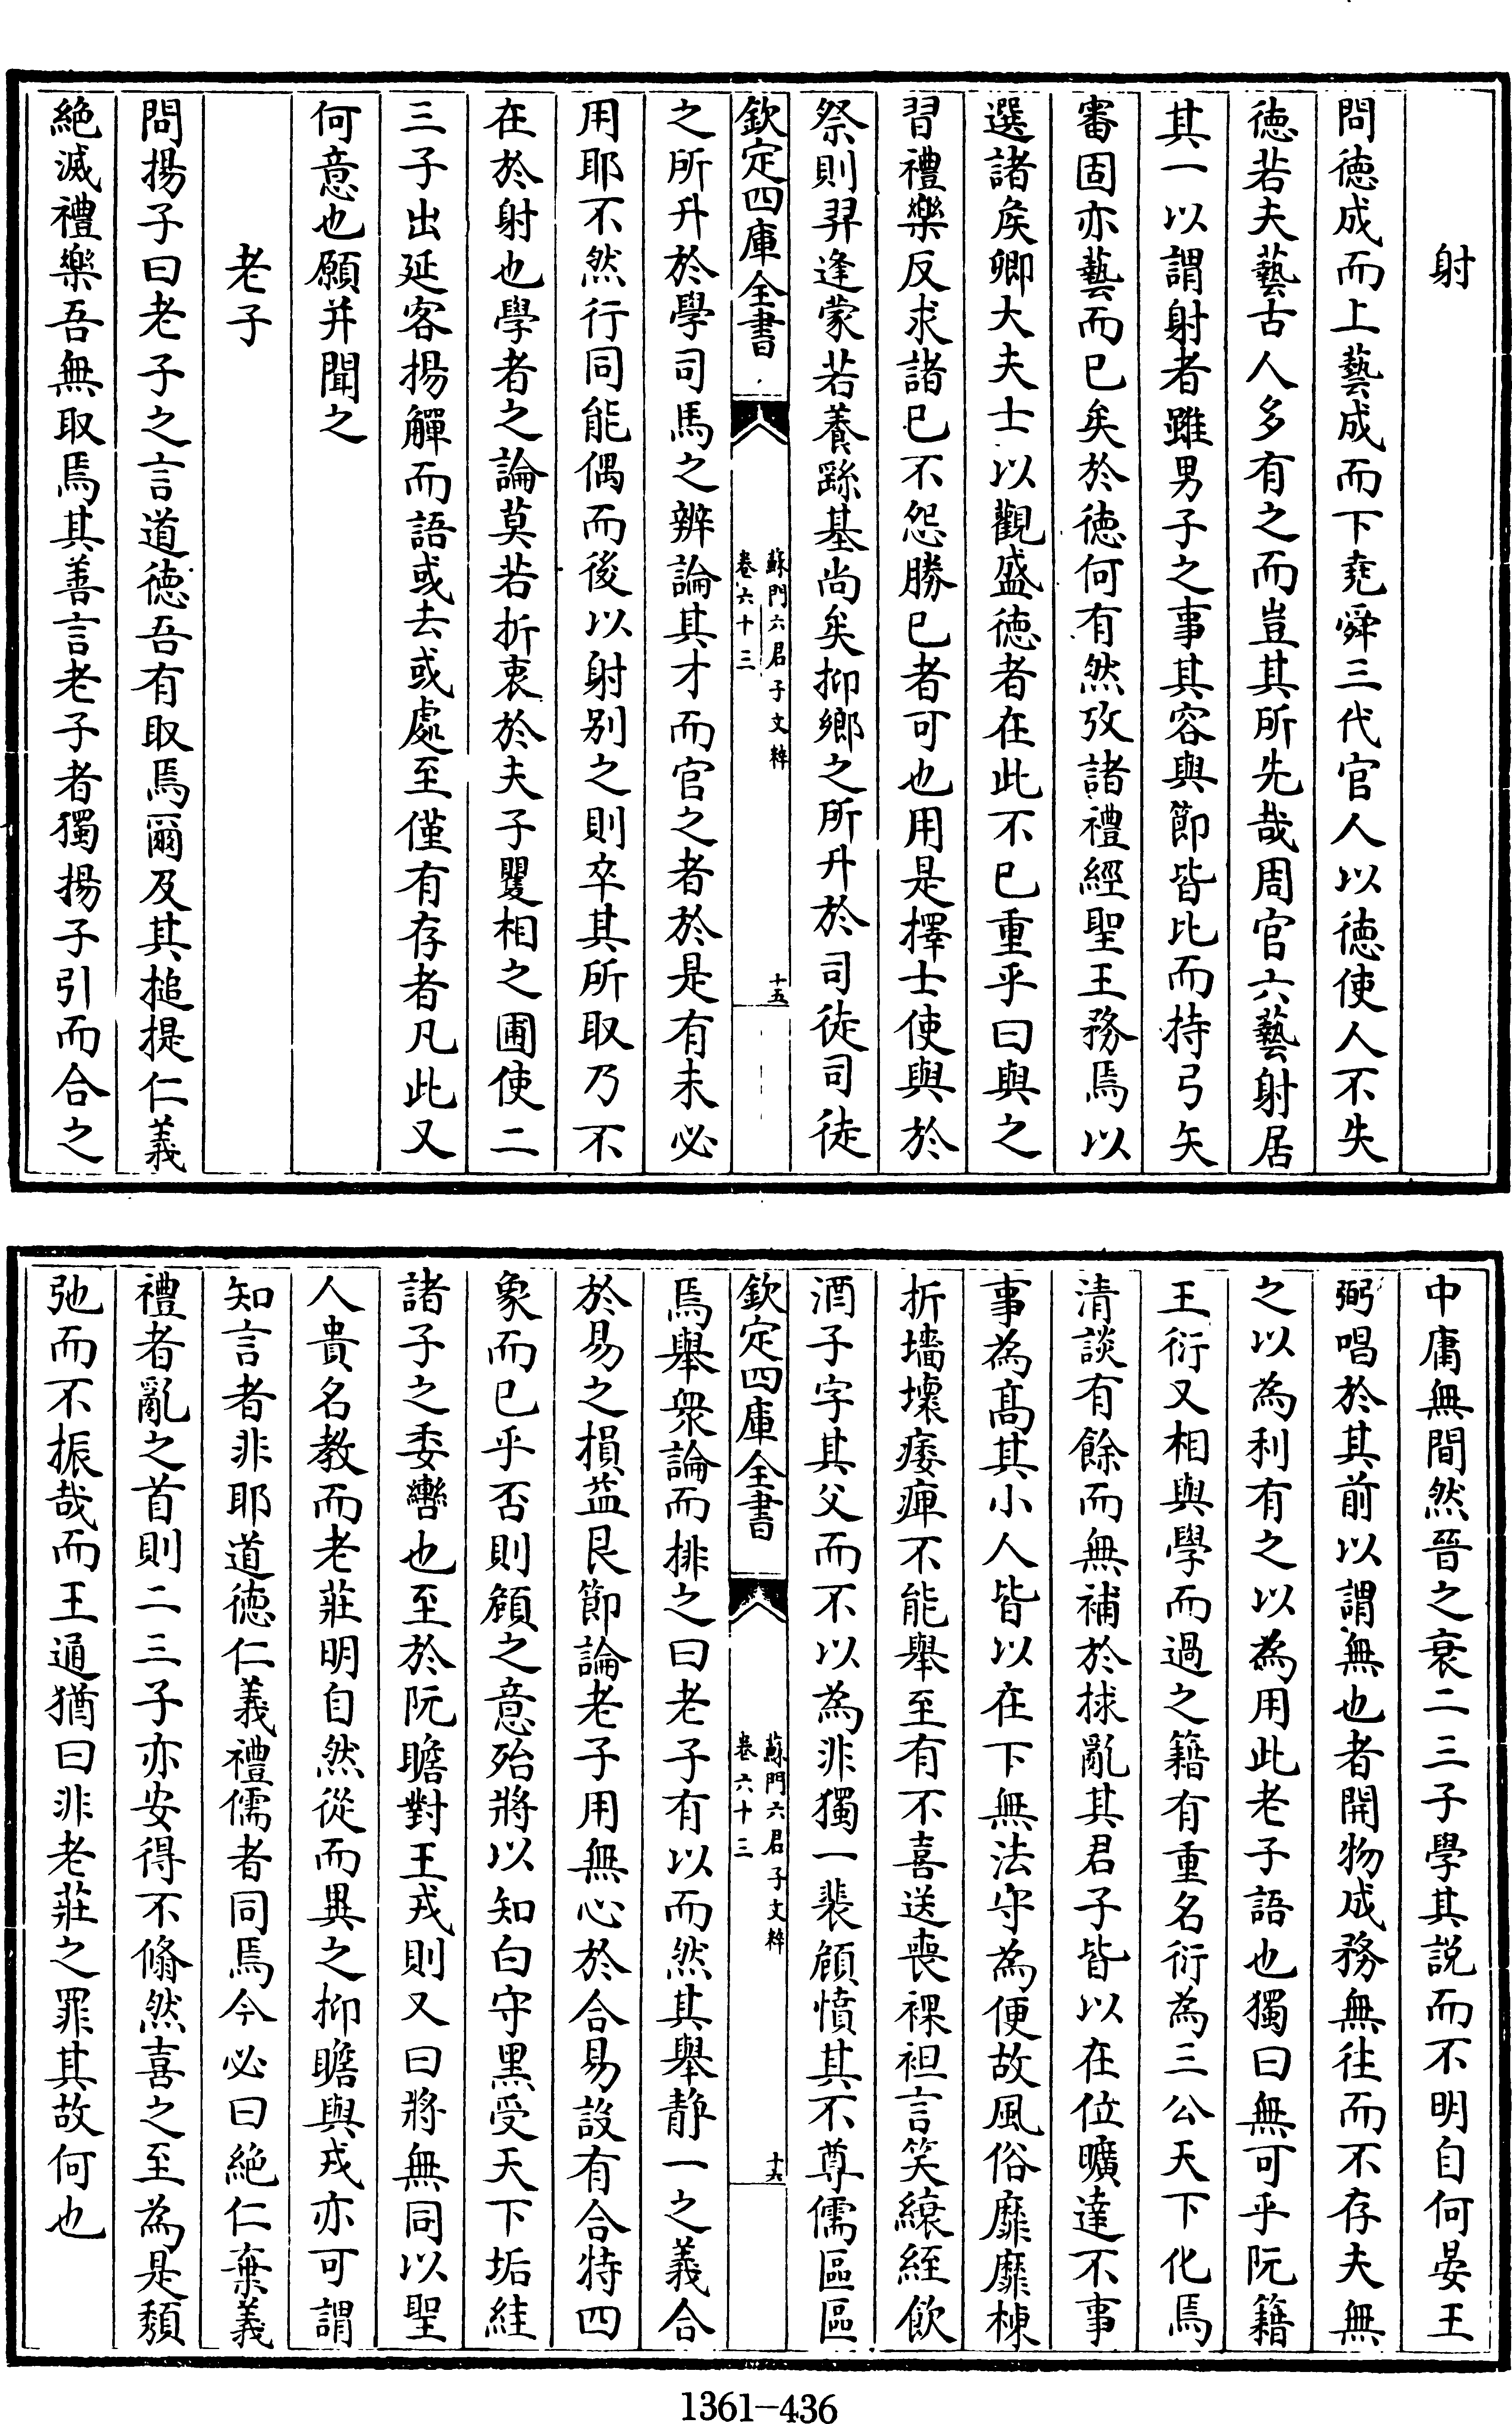 射
問徳成而上藝成而下堯舜三代官人以徳使人不失
徳若夫藝古人多有之而豈其所先哉周官六藝射居
其一以謂射者雖男子之事其容與節皆比而持弓矢
審固亦藝而已矣於徳何有然攷諸禮經聖王務焉以
選諸矦卿大夫士以觀盛徳者在此不已重乎曰與之
習禮樂反求諸已不怨勝已者可也用是擇士使與於
祭則羿逢蒙若養繇基尚矣抑鄉之所升於司徒司徒
欽定四庫全書
蘇門六君子文粹
卷六十三
十五
之所升於學司馬之辨論其才而官之者於是有未必
用耶不然行同能偶而後以射别之則卒其所取乃不
在於射也學者之論莫若折衷於夫子矍相之圃使二
三子出延客揚觶而語或去或處至僅有存者凡此又
何意也願并聞之
老子
問揚子曰老子之言道徳吾有取焉爾及其搥提仁義
絶滅禮樂吾無取焉其善言老子者獨揚子引而合之
中庸無間然晉之衰二三子學其説而不明自何晏王
弼唱於其前以謂無也者開物成務無往而不存夫無
之以為利有之以為用此老子語也獨曰無可乎阮籍
王衍又相與學而過之籍有重名衍為三公天下化焉
清談有餘而無補於捄亂其君子皆以在位曠達不事
事為髙其小人皆以在下無法守為便故風俗靡靡棟
折墻壞痿痺不能舉至有不喜送喪裸袒言笑縗絰飲
酒子字其父而不以為非獨一裴頠憤其不尊儒區區
欽定四庫全書
蘇門六君子文粹
卷六十三
十六
焉舉衆論而排之曰老子有以而然其舉静一之義合
於易之損益艮節論老子用無心於合易設有合特四
象而已乎否則頠之意殆將以知白守黒受天下垢絓
諸子之委轡也至於阮瞻對王戎則又曰將無同以聖
人貴名教而老莊明自然從而異之抑瞻與戎亦可謂
知言者非耶道徳仁義禮儒者同焉今必曰絶仁棄義
禮者亂之首則二三子亦安得不翛然喜之至為是頽
弛而不振哉而王通猶曰非老莊之罪其故何也
1361—436